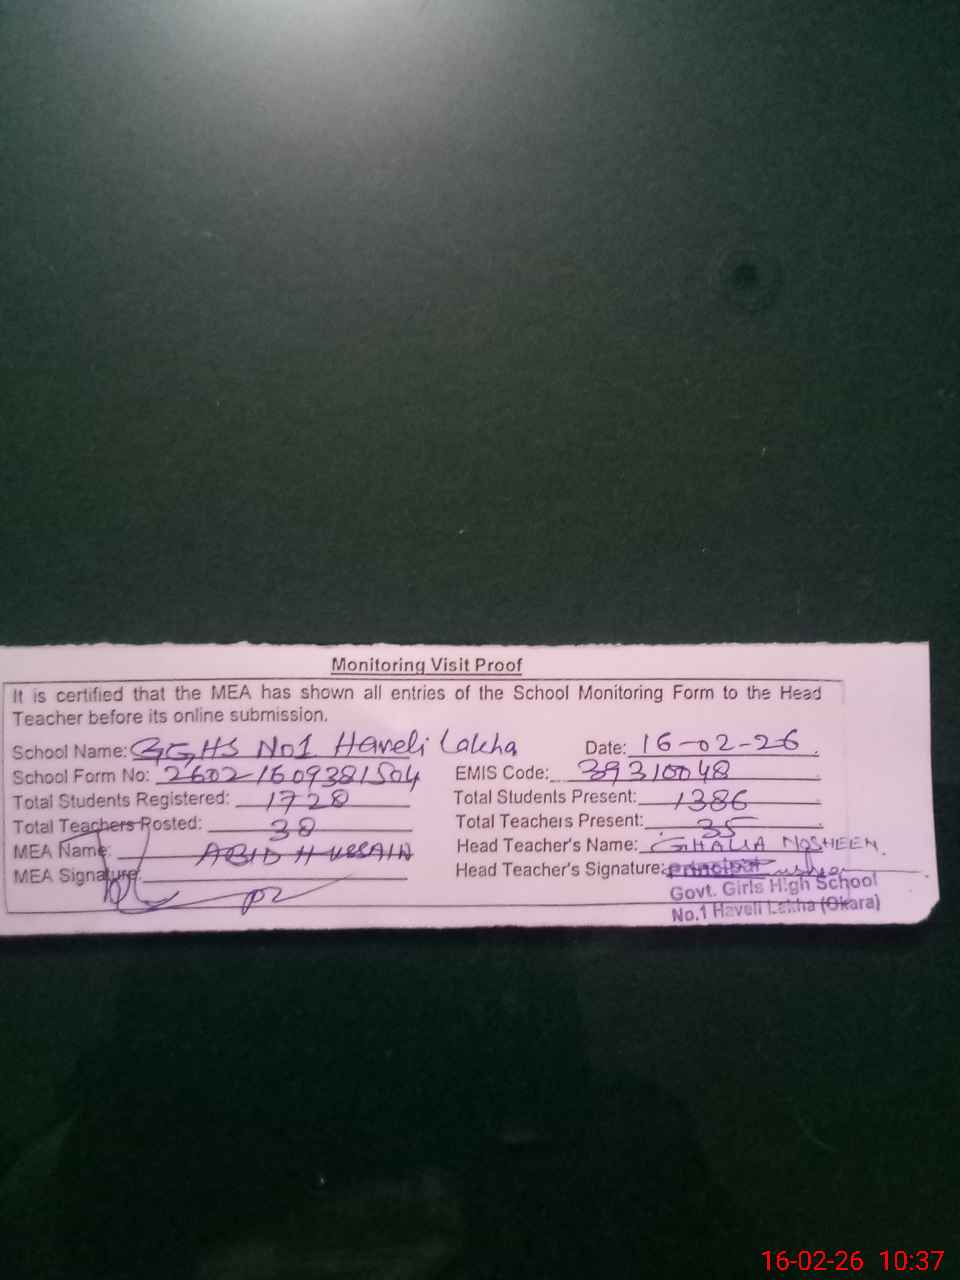 Monitoring Visit Proof
It is certified that the MEA has shown all entries of the School Monitoring Form to the Head
Teacher before its online submission.
School Name: GGHS No1 Haveli Lakha Date: 16-02-26
School Form No: 26021609381504 EMIS Code: 39310048
Total Students Registered: 1728 Total Students Present: 1386
Total Teachers Posted: 38 Total Teachers Present: 35
MEA Name: ABID HUSSAIN Head Teacher's Name: GHALIA NOSHEEN.
MEA Signature: Head Teacher's Signature:
Principal
Govt. Girls High School
No.1 Haveli Lakha (Okara)
16-02-26 10:37